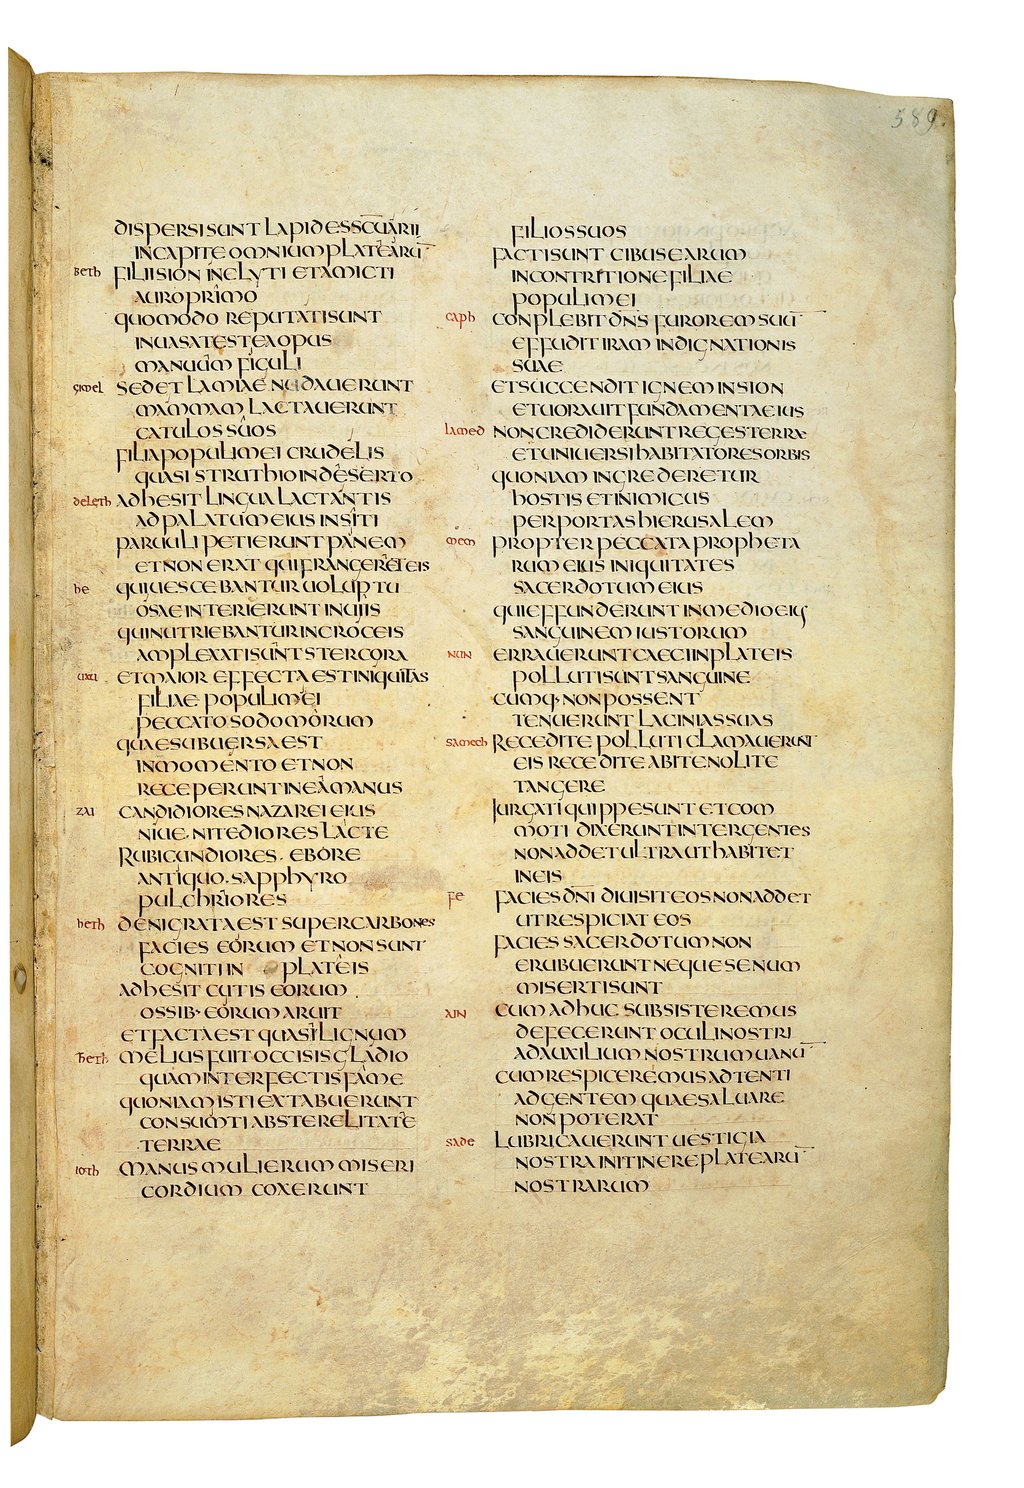 589.
DISPERSI SUNT LAPIDES SC̄UARII
IN CAPITE OMNIUM PLATEARŪ
Beth FILII SION INCLYTI ET AMICTI
AURO PRIMO
QUOMODO REPUTATI SUNT
IN UASA TESTEA OPUS
MANUUM FIGULI
Gimel SED ET LAMIAE NUDAUERUNT
MAMMAM LACTAUERUNT
CATULOS SUOS
FILIA POPULI MEI CRUDELIS
QUASI STRUTHIO IN DESERTO
Deleth ADHESIT LINGUA LACTANTIS
AD PALATUM EIUS IN SITI
PARUULI PETIERUNT PANEM
ET NON ERAT QUI FRANGERET EIS
he QUI UESCEBANTUR UOLUPTU
OSAE INTERIERUNT IN UIIS
QUI NUTRIEBANTUR IN CROCEIS
AMPLEXATI SUNT STERCORA
uau ET MAIOR EFFECTA EST INIQUITAS
FILIAE POPULI MEI
PECCATO SODOMORUM
QUAE SUBUERSA EST
IN MOMENTO ET NON
RECEPERUNT IN EA MANUS
ZAI CANDIDIORES NAZAREI EIUS
NIUE, NITEDIORES LACTE
RUBICUNDIORES, EBORE
ANTIQUO, SAPPHYRO
PULCHRIORES
heth DENIGRATA EST SUPER CARBONES
FACIES EORUM ET NON SUNT
COGNITI IN PLATEIS
ADHESIT CUTIS EORUM
OSSIB· EORUM ARUIT
ET FACTA EST QUASI LIGNUM
Teth MELIUS FUIT OCCISIS GLADIO
QUAM INTERFECTIS FAME
QUONIAM ISTI EXTABUERUNT
CONSUMTI AB STERELITATE
TERRAE
ioth MANUS MULIERUM MISERI
CORDIUM COXERUNT
FILIOS SUOS
FACTI SUNT CIBUS EARUM
IN CONTRITIONE FILIAE
POPULI MEI
caph CONPLEBIT DN̄S FUROREM SUŪ
EFFUDIT IRAM INDIGNATIONIS
SUAE
ET SUCCENDIT IGNEM IN SION
ET UORAUIT FUNDAMENTA EIUS
lamed NON CREDIDERUNT REGES TERRAE
ET UNIUERSI HABITATORES ORBIS
QUONIAM INGREDERETUR
HOSTIS ET INIMICUS
PER PORTAS HIERUSALEM
mem PROPTER PECCATA PROPHETA
RUM EIUS INIQUITATES
SACERDOTUM EIUS
QUI EFFUNDERUNT IN MEDIO EIUS
SANGUINEM IUSTORUM
NUN ERRAUERUNT CAECI IN PLATEIS
POLLUTI SUNT SANGUINE
CUMQ· NON POSSENT
TENUERUNT LACINIAS SUAS
samech RECEDITE POLLUTI CLAMAUERUNT
EIS RECEDITE ABITE NOLITE
TANGERE
IURGATI QUIPPE SUNT ET COM
MOTI DIXERUNT INTER GENTES
NON ADDET ULTRA UT HABITET
IN EIS
fe FACIES DN̄I DIUISIT EOS NON ADDET
UT RESPICIAT EOS
FACIES SACERDOTUM NON
ERUBUERUNT NEQUE SENUM
MISERTI SUNT
AIN CUM ADHUC SUBSISTEREMUS
DEFECERUNT OCULI NOSTRI
AD AUXILIUM NOSTRUM UANŪ
CUM RESPICEREMUS ADTENTI
AD GENTEM QUAE SALUARE
NON POTERAT
sade LUBRICAUERUNT UESTIGIA
NOSTRA IN ITINERE PLATEARŪ
NOSTRARUM